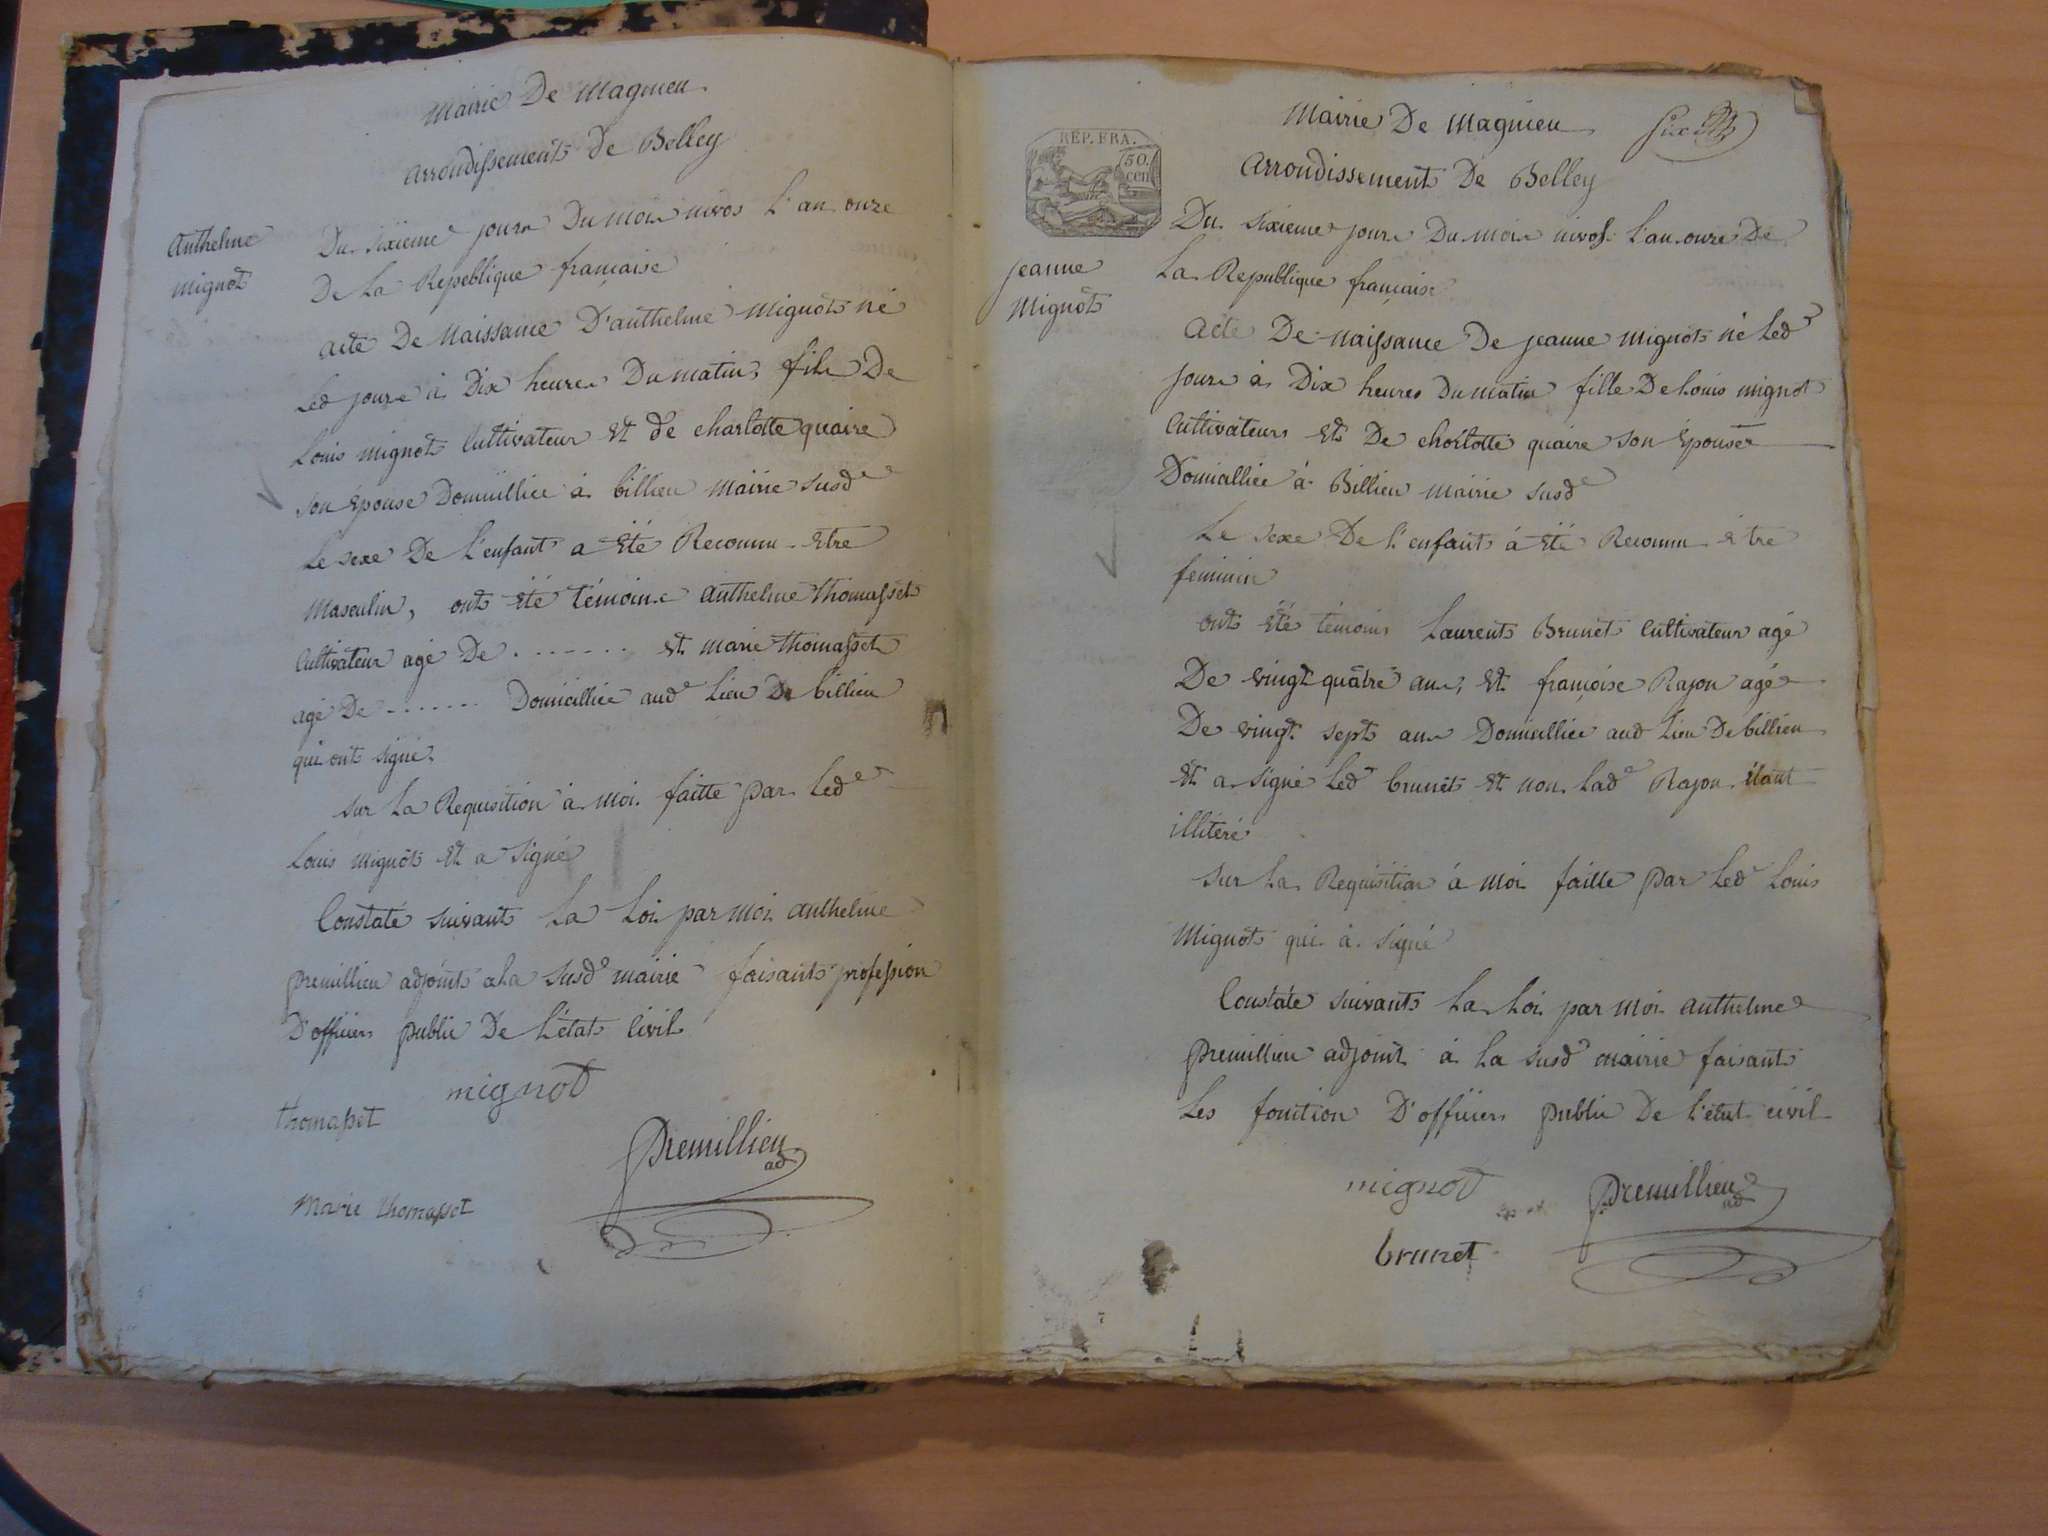 Mairie De Magnieu
arrondissement de Belley
Anthelme
mignot
Du sixieme jour Du mois nivos l'an onze
De la Repeblique française
acte De Naissance D'anthelme Mignot né
Led jour à Dix heures Du matin, fils De
Louis mignot Cultivateur Et de charlotte quaire
son Epouse Domicilliée à billieu mairie susde
Le sexe De l'enfant a Eté Reconnu Etre
Masculin, ont été témoins Anthelme thomasset
Cultivateur agé De ....... et marie thomasset
agé De ....... Domicilliée aude Lieu De billieu
qui ont signé.
sur La Requisition à moi faitte par Ledr
Louis Mignot Et a signé
Constaté suivant La Loi par Moi anthelme
premillieu adjoint ala susde mairie faisant profession
D'officier public De l'état Civil
mignot
thomasset
premillieu
ad
Marie thomasset
REP. FRA.
50.
cen
Mairie De Magnieu
six
arrondissement De Belley
Du sixieme jour Du mois nivos l'an onze De
La Republique française
jeanne
Mignot
acte De naissance De jeanne Mignot né Ledr
jour à Dix heures Du matin fille De Louis mignot
Cultivateur Et De charlotte quaire son Epouse
Domicilliée à Billieu mairie susde
Le sexe De l'enfant á Eté Reconnu être
feminin
ont Eté témoins Laurent Brunet Cultivateur agé
De vingt quatre ans, Et françoise Rajon agé
De vingt sept ans Domicilliée aud Lieu De billieu
Et a signé Ledr brunet Et non Lade Rajon étant
illitéré
sur La Requisition á Moi faitte par Ledr Louis
Mignot qui à signé
Constaté suivant La Loi par Moi anthelme
premillieu adjoint á La susde mairie faisant
Les fonction D'officier public De l'état civil
mignot
premillieu
ad
brunet